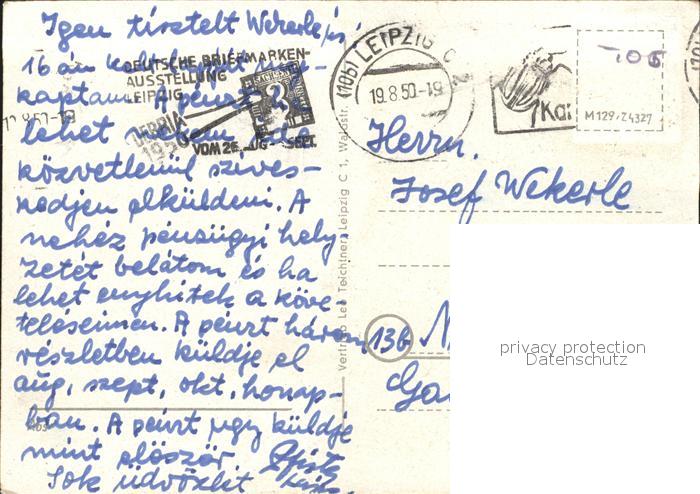 Igen tisztelt Wekerle úr
16 án kelt
kaptam. A pénzt
lehet nekem ide
közvetlenül szives-
kedjen elküldeni. A
nehéz pénzügyi hely-
zetét belátom és ha
lehet enyhitek a köve-
teléseimen. A pénzt három
részletben küldje el
aug, szept, okt, honap-
ban. A pénzt ugy küldje
mint először
Sok üdvözlet
DEUTSCHE BRIEFMARKEN-
AUSSTELLUNG
LEIPZIG
DEBRIA
1950
VOM 26. AUG - SEPT.
(10b) LEIPZIG C
19.8.50-19
M129/24327
Vertrieb Leo Teichtner, Leipzig C 1, Waldstr.
Herrn
Josef Wekerle
13b
privacy protection
Datenschutz